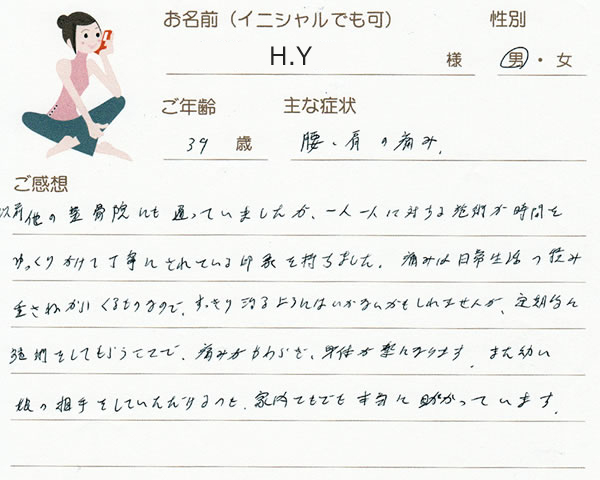 お名前（イニシャルでも可） 性別
H.Y 様 男・女
ご年齢 主な症状
39 歳 腰、肩の痛み.
ご感想
以前他の整骨院にも通っていましたが、一人一人に対する施術が時間を
ゆっくりかけて丁寧にされている印象を持ちました. 痛みは日常生活の積み
重さねからくるものなので、すっきり治るようにはいかないかもしれませんが、定期的に
施術をしてもらうことで、痛みがやわらぎ、身体が楽になります. また幼い
娘の相手をしていただけるのも、家内ともども本当に助かっています.